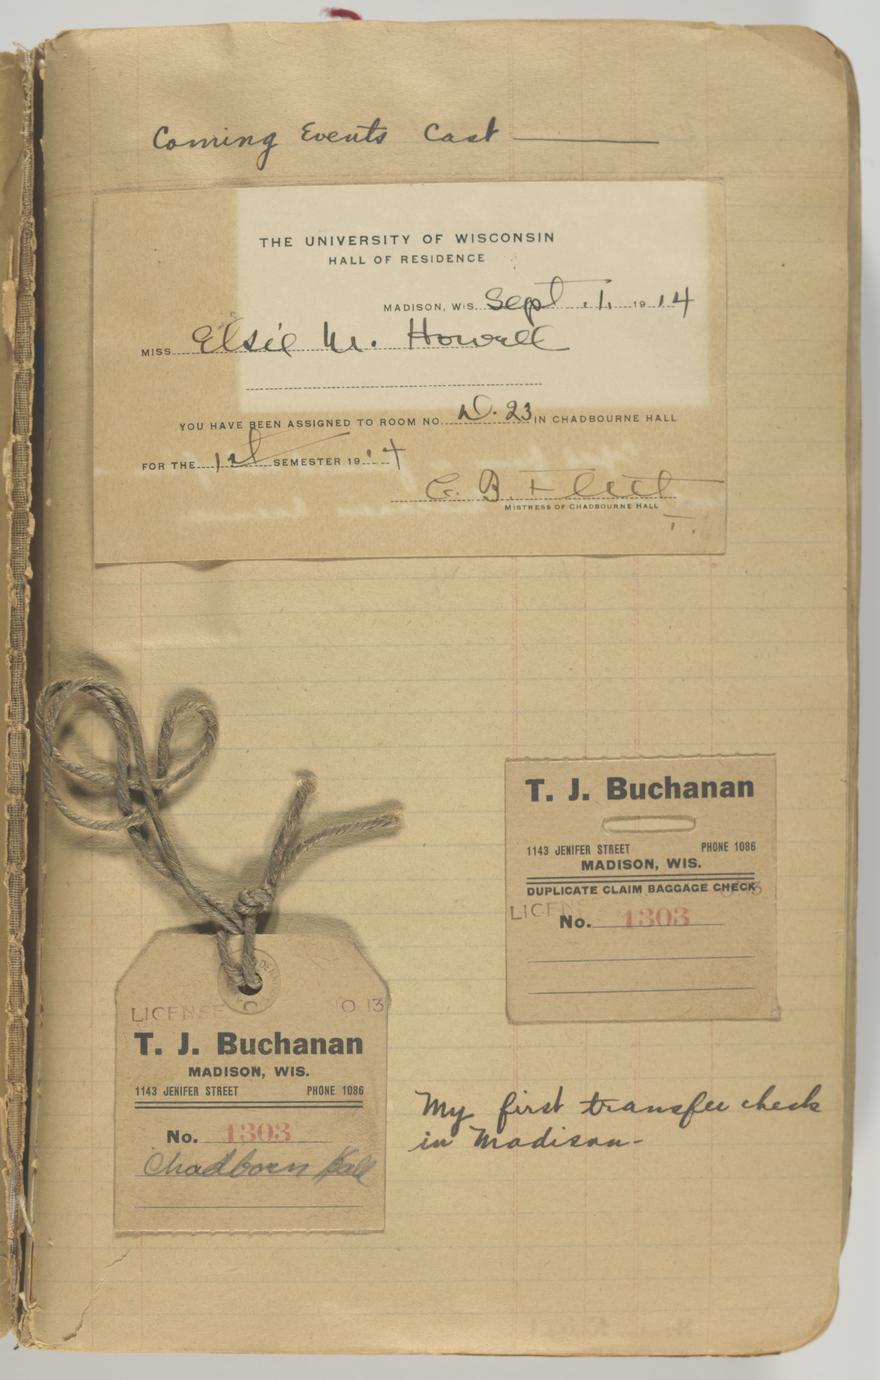 Coming Events Cast ———
THE UNIVERSITY OF WISCONSIN
HALL OF RESIDENCE
MADISON, WIS. Sept. 1. 1914
MISS Elsie M. Howell
YOU HAVE BEEN ASSIGNED TO ROOM NO. D. 23 IN CHADBOURNE HALL
FOR THE 1st SEMESTER 19 14
MISTRESS OF CHADBOURNE HALL
T. J. Buchanan
1143 JENIFER STREET PHONE 1086
MADISON, WIS.
DUPLICATE CLAIM BAGGAGE CHECK
LICENSE
No. 1303
LICENSE NO 13
T. J. Buchanan
MADISON, WIS.
1143 JENIFER STREET PHONE 1086
No. 1303
Chadborn Hall
My first transfer check
in Madison-